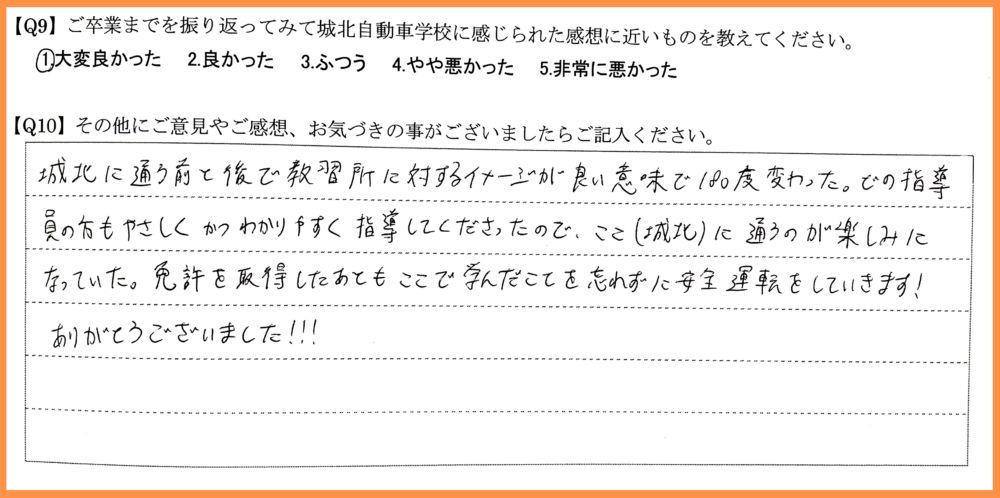 【Q9】ご卒業までを振り返ってみて城北自動車学校に感じられた感想に近いものを教えてください。
①.大変良かった 2.良かった 3.ふつう 4.やや悪かった 5.非常に悪かった
【Q10】その他にご意見やご感想、お気づきの事がございましたらご記入ください。
城北に通う前と後で教習所に対するイメージが良い意味で180度変わった。どの指導
員の方もやさしくかつわかりやすく指導してくださったので、ここ(城北)に通うのが楽しみに
なっていた。免許を取得したあともここで学んだことを忘れずに安全運転をしていきます!
ありがとうございました!!!